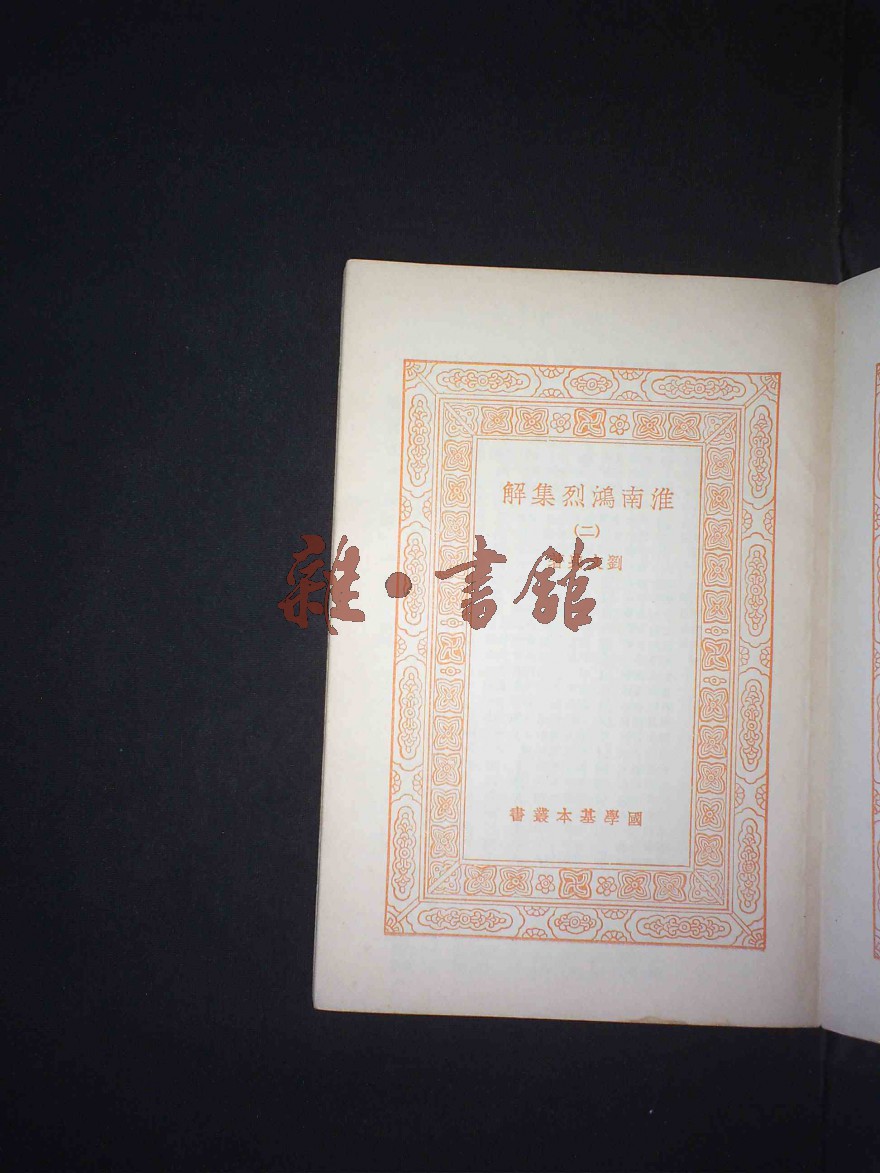 淮南鴻烈集解
(二)
劉
雜·書館
國學基本叢書